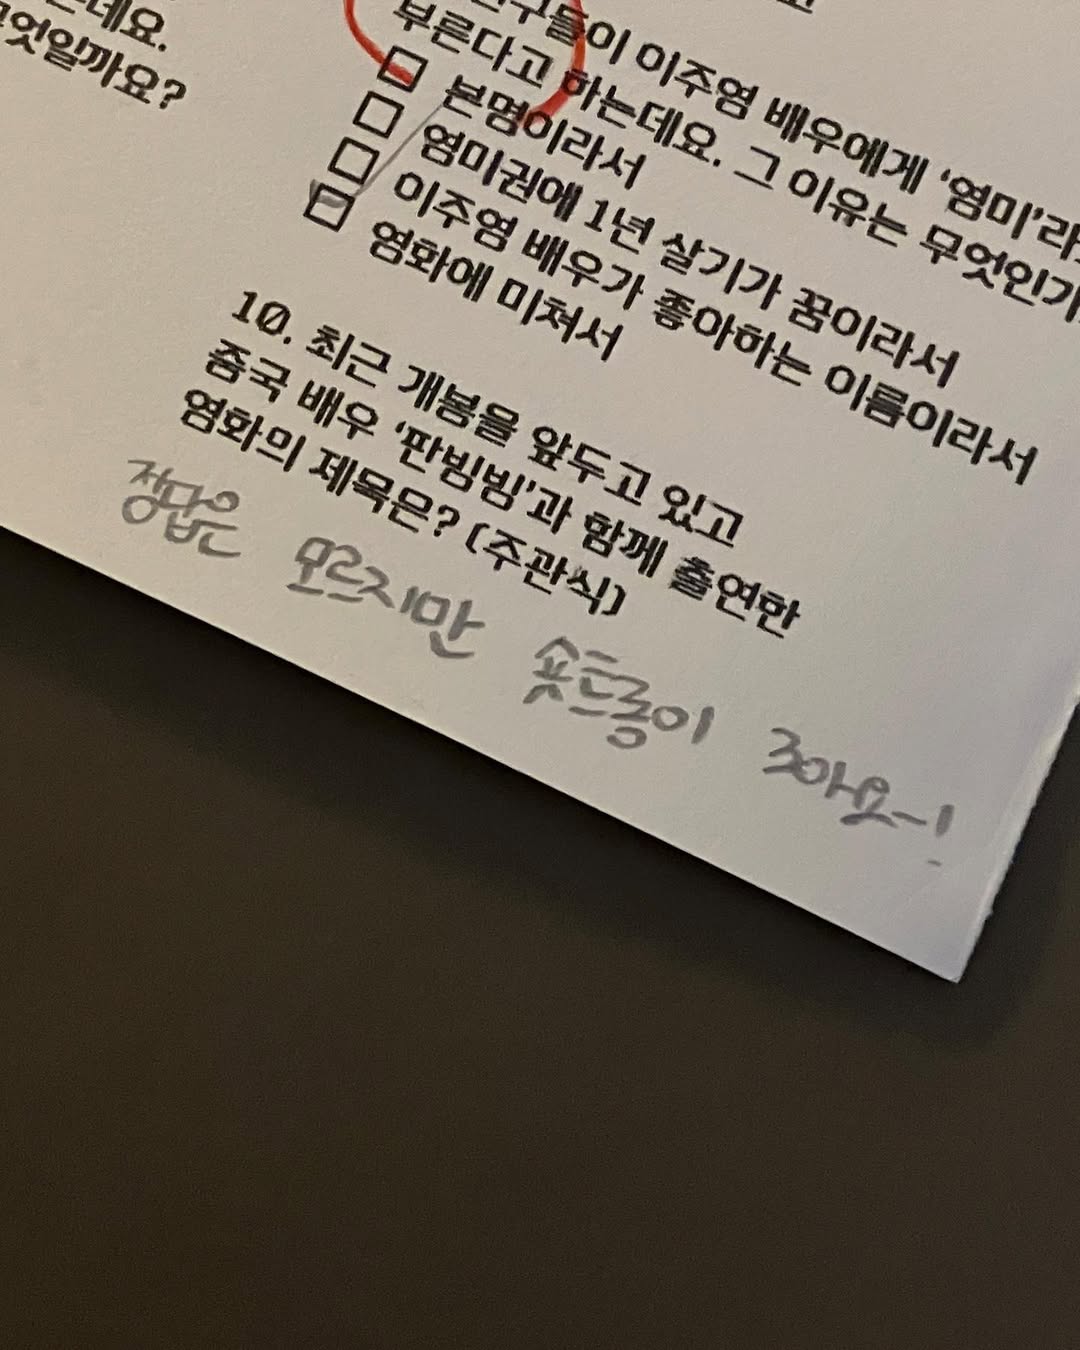 데요.
엇일까요?
구들이 이주영 배우에게 ‘영미’라
부른다고 하는데요. 그 이유는 무엇인가
본명이라서
영미권에 1년 살기가 꿈이라서
이주영 배우가 좋아하는 이름이라서
영화에 미쳐서
10. 최근 개봉을 앞두고 있고
중국 배우 ‘판빙빙’과 함께 출연한
영화의 제목은? (주관식)
정답은 모르지만 조아요~!